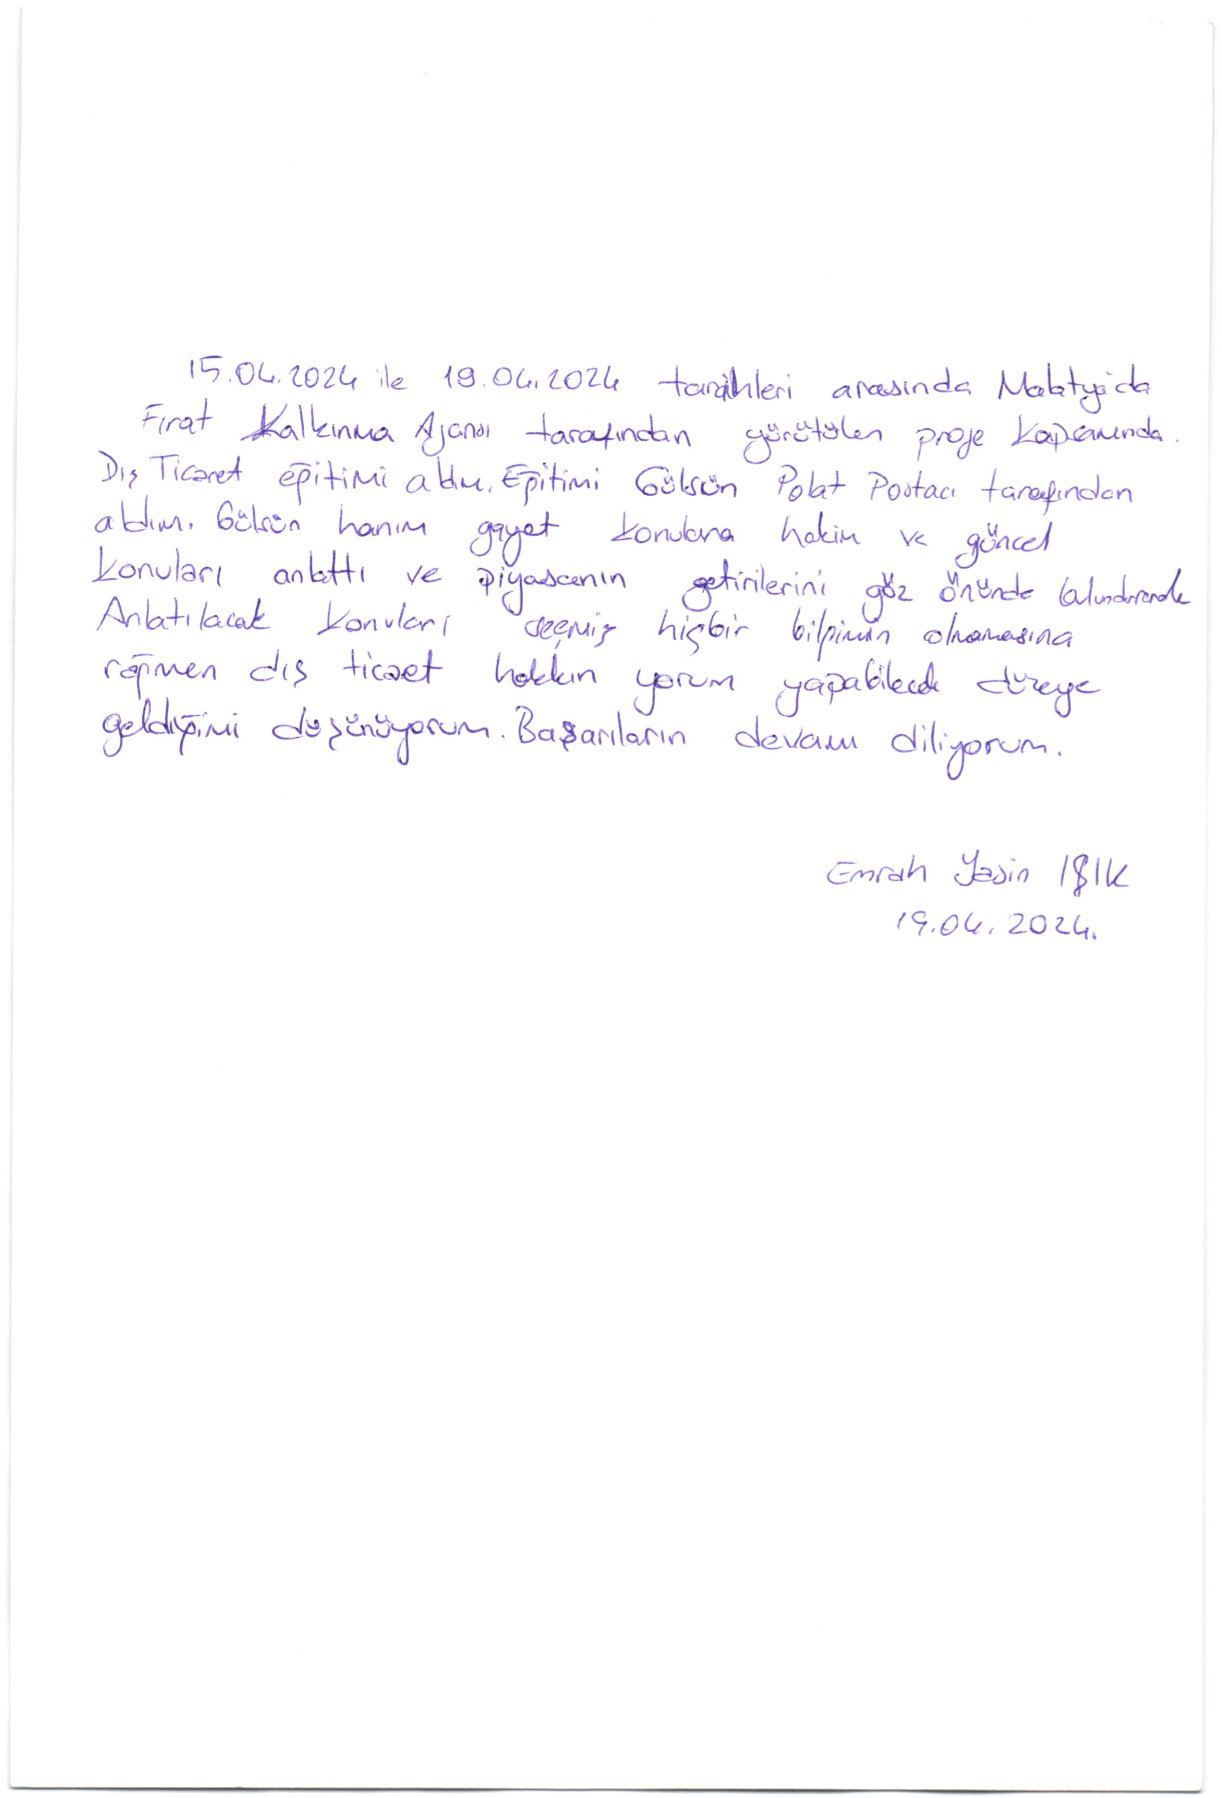 15.04.2024 ile 19.04.2024 tarihleri arasında Malatya'da
Fırat Kalkınma Ajansı tarafından yürütülen proje kapsamında.
Dış Ticaret eğitimi aldım. Eğitimi Gülsün Polat Postacı tarafından
aldım. Gülsün hanım gayet konulara hakim ve güncel
konuları anlattı ve piyasanın getirilerini göz önünde bulundurarak
Anlatılacak konuları seçmiş hiçbir bilgimin olmamasına
rağmen dış ticaet hakkın yorum yapabilecek düzeye
geldiğimi düşünüyorum. Başarıların devam diliyorum.
Emrah Yasin IŞIK
19.04.2024.